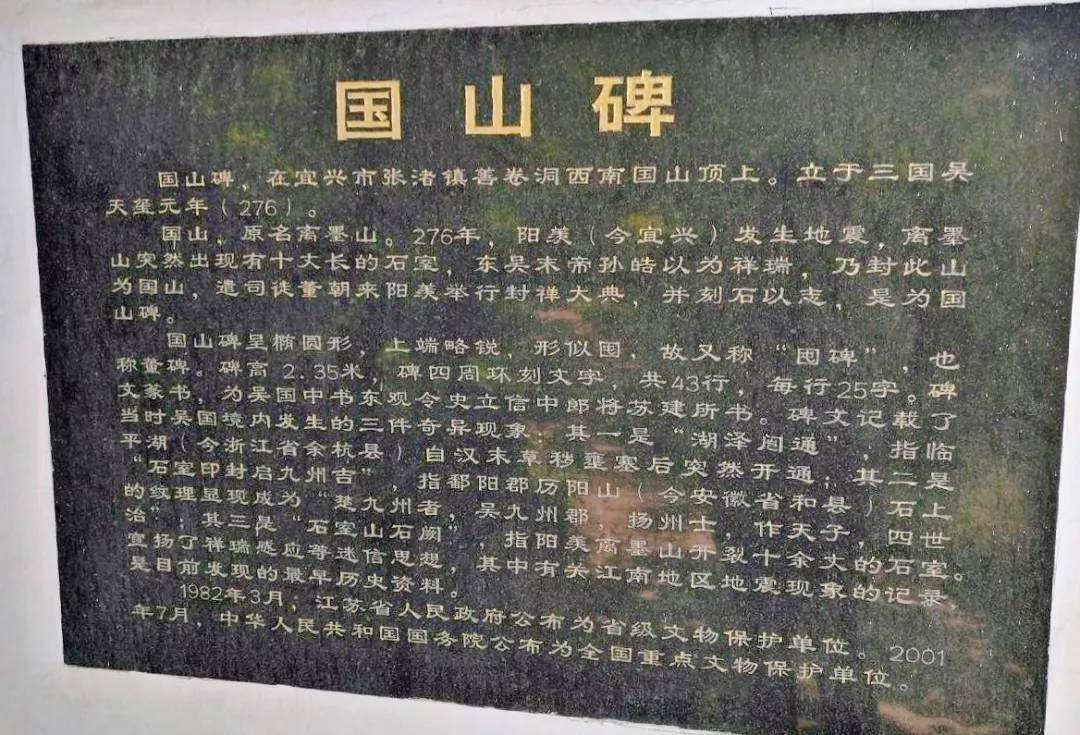 国山碑
国山碑，在宜兴市张渚镇善卷洞西南国山顶上。立于三国吴
天玺元年（276）。
国山，原名离墨山。276年，阳羡（今宜兴）发生地震，离墨
山突然出现有十丈长的石室，东吴末帝孙皓以为祥瑞，乃封此山
为国山，遣司徒董朝来阳羡举行封禅大典，并刻石以志，是为国
山碑。
国山碑呈椭圆形，上端略锐，形似囤，故又称“囤碑”，也
称董碑。碑高2.35米，碑四周环刻文字，共43行，每行25字。碑
文篆书，为吴国中书东观令史立信中郎将苏建所书。碑文记载了
当时吴国境内发生的三件奇异现象：其一是“湖泽闿通”，指临
平湖（今浙江省余杭县）自汉末草秽壅塞后突然开通；其二是
“石室印封启九州吉”，指鄱阳郡历阳山（今安徽省和县）石上
的纹理显现成为“楚九州者，吴九州郡，扬州士，作天子，四世
治”；其三是“石室山石阙”，指阳羡离墨山开裂十余丈的石室。
宣扬了祥瑞感应等迷信思想，其中有关江南地区地震现象的记录，
是目前发现的最早历史资料。
1982年3月，江苏省人民政府公布为省级文物保护单位。2001
年7月，中华人民共和国国务院公布为全国重点文物保护单位。